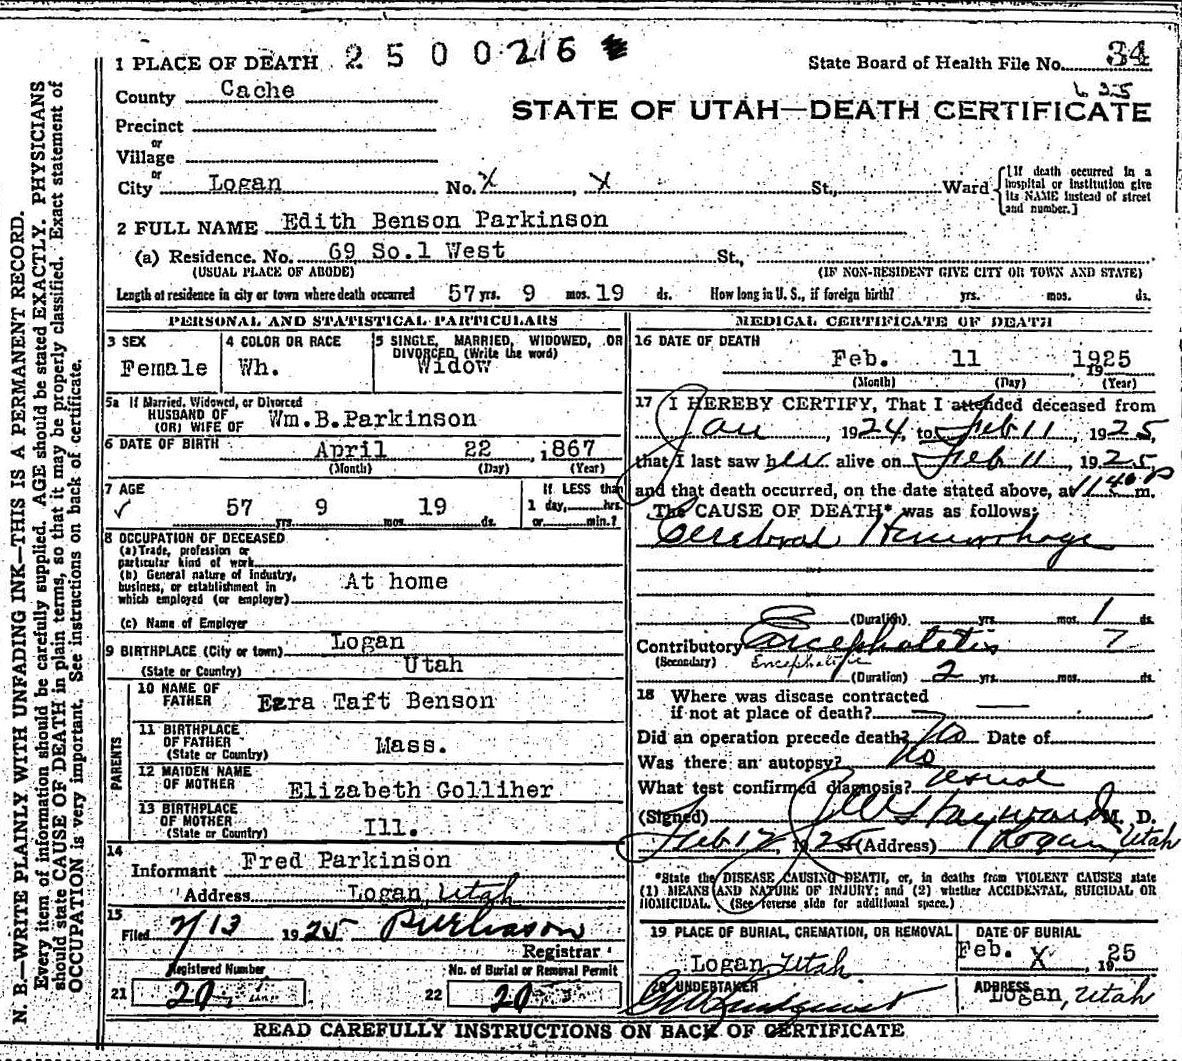 N. B.—WRITE PLAINLY WITH UNFADING INK—THIS IS A PERMANENT RECORD.
Every item of information should be carefully supplied. AGE should be stated EXACTLY. PHYSICIANS
should state CAUSE OF DEATH in plain terms, so that it may be properly classified. Exact statement of
OCCUPATION is very important. See instructions on back of certificate.
1 PLACE OF DEATH 2 5 0 0 216
State Board of Health File No. 34
635
County Cache
STATE OF UTAH—DEATH CERTIFICATE
Precinct
or
Village
or
City Logan No. X, X St., Ward
[If death occurred in a
hospital or institution give
its NAME instead of street
and number.]
2 FULL NAME Edith Benson Parkinson
(a) Residence. No. 69 So.1 West St.,
(USUAL PLACE OF ABODE) (IF NON-RESIDENT GIVE CITY OR TOWN AND STATE)
Length of residence in city or town where death occurred 57 yrs. 9 mos. 19 ds. How long in U. S., if foreign birth? yrs. mos. ds.
PERSONAL AND STATISTICAL PARTICULARS
3 SEX
Female
4 COLOR OR RACE
Wh.
5 SINGLE, MARRIED, WIDOWED, OR
DIVORCED (Write the word)
Widow
5a If Married, Widowed, or Divorced
HUSBAND OF
(OR) WIFE OF Wm.B.Parkinson
6 DATE OF BIRTH April 22, 1867
(Month) (Day) (Year)
7 AGE
✓ 57 yrs. 9 mos. 19 ds.
If LESS than
1 day, hrs.
or min.?
8 OCCUPATION OF DECEASED
(a) Trade, profession or
particular kind of work
(b) General nature of industry,
business, or establishment in
which employed (or employer) At home
(c) Name of Employer
9 BIRTHPLACE (City or town) Logan
(State or Country) Utah
PARENTS
10 NAME OF
FATHER Ezra Taft Benson
11 BIRTHPLACE
OF FATHER
(State or Country) Mass.
12 MAIDEN NAME
OF MOTHER Elizabeth Golliher
13 BIRTHPLACE
OF MOTHER
(State or Country) Ill.
14
Informant Fred Parkinson
Address Logan, Utah
15
Filed 2/13 1925
Registrar
Registered Number
21 20
No. of Burial or Removal Permit
22 20
MEDICAL CERTIFICATE OF DEATH
16 DATE OF DEATH
Feb. 11 1925
19
(Month) (Day) (Year)
17 I HEREBY CERTIFY, That I attended deceased from
Jan, 1924, to Feb 11, 1925,
that I last saw her alive on Feb 11, 1925
and that death occurred, on the date stated above, at 1140 p m.
The CAUSE OF DEATH* was as follows:
Cerebral Hemorrhage
(Duration) yrs. mos. 1 ds.
Contributory Encephaletis 7
(Secondary) Encephalitis
(Duration) 2 yrs. mos. ds.
18 Where was disease contracted
if not at place of death?
Did an operation precede death? No Date of
Was there an autopsy? No
What test confirmed diagnosis? usual
(Signed) Hayward M. D.
Feb 12, 1925 (Address) Logan, Utah
*State the DISEASE CAUSING DEATH, or, in deaths from VIOLENT CAUSES state
(1) MEANS AND NATURE OF INJURY; and (2) whether ACCIDENTAL, SUICIDAL OR
HOMICIDAL. (See reverse side for additional space.)
19 PLACE OF BURIAL, CREMATION, OR REMOVAL
Logan, Utah
DATE OF BURIAL
Feb. X, 1925
20 UNDERTAKER
ADDRESS
Logan, Utah
READ CAREFULLY INSTRUCTIONS ON BACK OF CERTIFICATE